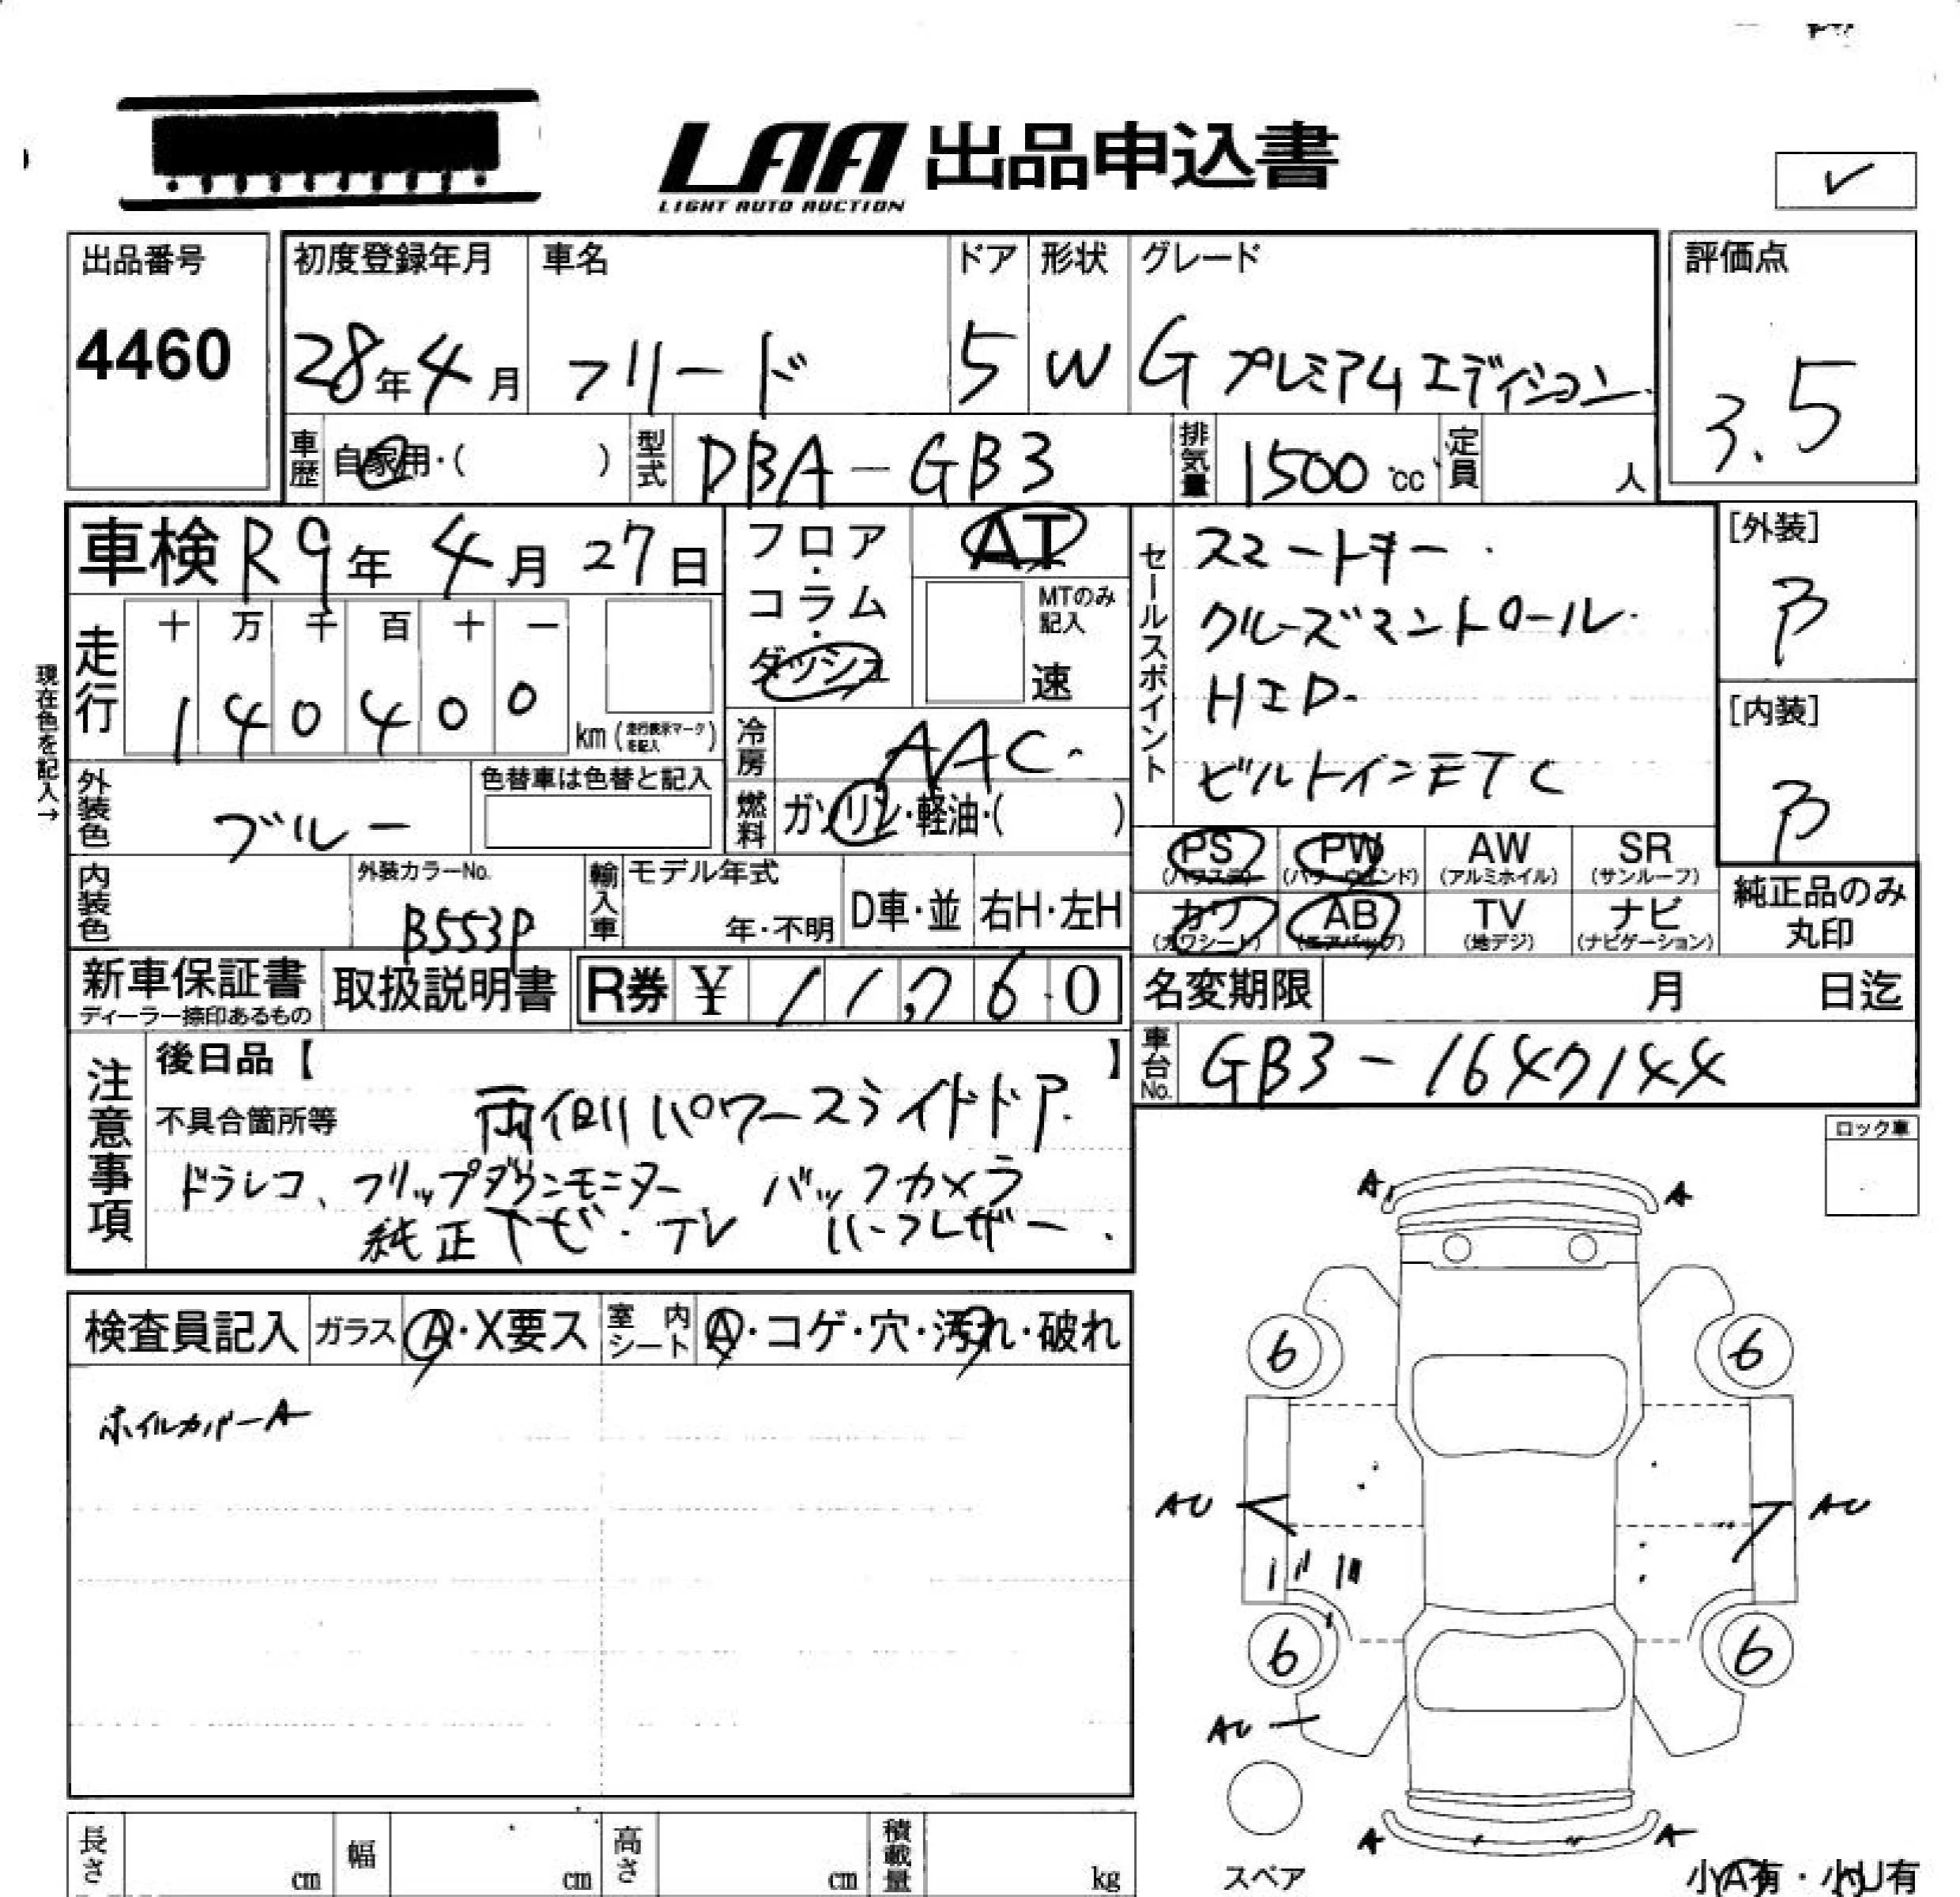 LAA 出品申込書
LIGHT AUTO AUCTION
出品番号
4460
初度登録年月
28年4月
車名
フリード
ドア
5
形状
W
グレード
G プレミアムエディション
評価点
3.5
車歴
自家用・( )
型式
DBA-GB3
排気量
1500 cc
定員
人
車検 R9年 4月 27日
走行
十 万 千 百 十 一
1 4 0 4 0 0
km (走行表示マークを記入)
現在色を記入→
外装色
ブルー
色替車は色替と記入
内装色
外装カラーNo.
B553P
フロア・コラム・ダッシュ
AT
MTのみ記入
速
冷房
AAC
燃料
ガソリン・軽油・( )
輸入車
モデル年式
年・不明
D車・並
右H・左H
セールスポイント
スマートキー・
クルーズコントロール・
HID・
ビルトインETC
[外装]
B
[内装]
B
PS (パワステ)
PW (パワーウインド)
AW (アルミホイル)
SR (サンルーフ)
カワ (カワシート)
AB (エアバッグ)
TV (地デジ)
ナビ (ナビゲーション)
純正品のみ丸印
新車保証書
ディーラー捺印あるもの
取扱説明書
R券 ¥ 11,760
名変期限
月 日迄
車台No.
GB3-1647144
注意事項
後日品【 】
不具合箇所等
両側パワースライドドア.
ドラレコ、フリップダウンモニター バックカメラ
純正ナビ・TV ハーフレザー.
ロック車
検査員記入
ガラス A・X要ス
室内シート A・コゲ・穴・汚れ・破れ
ホイルカバーA
A A
6 6
AU AU
6 6
AU
A A
スペア
小A有・小U有
長さ cm
幅 cm
高さ cm
積載量 kg